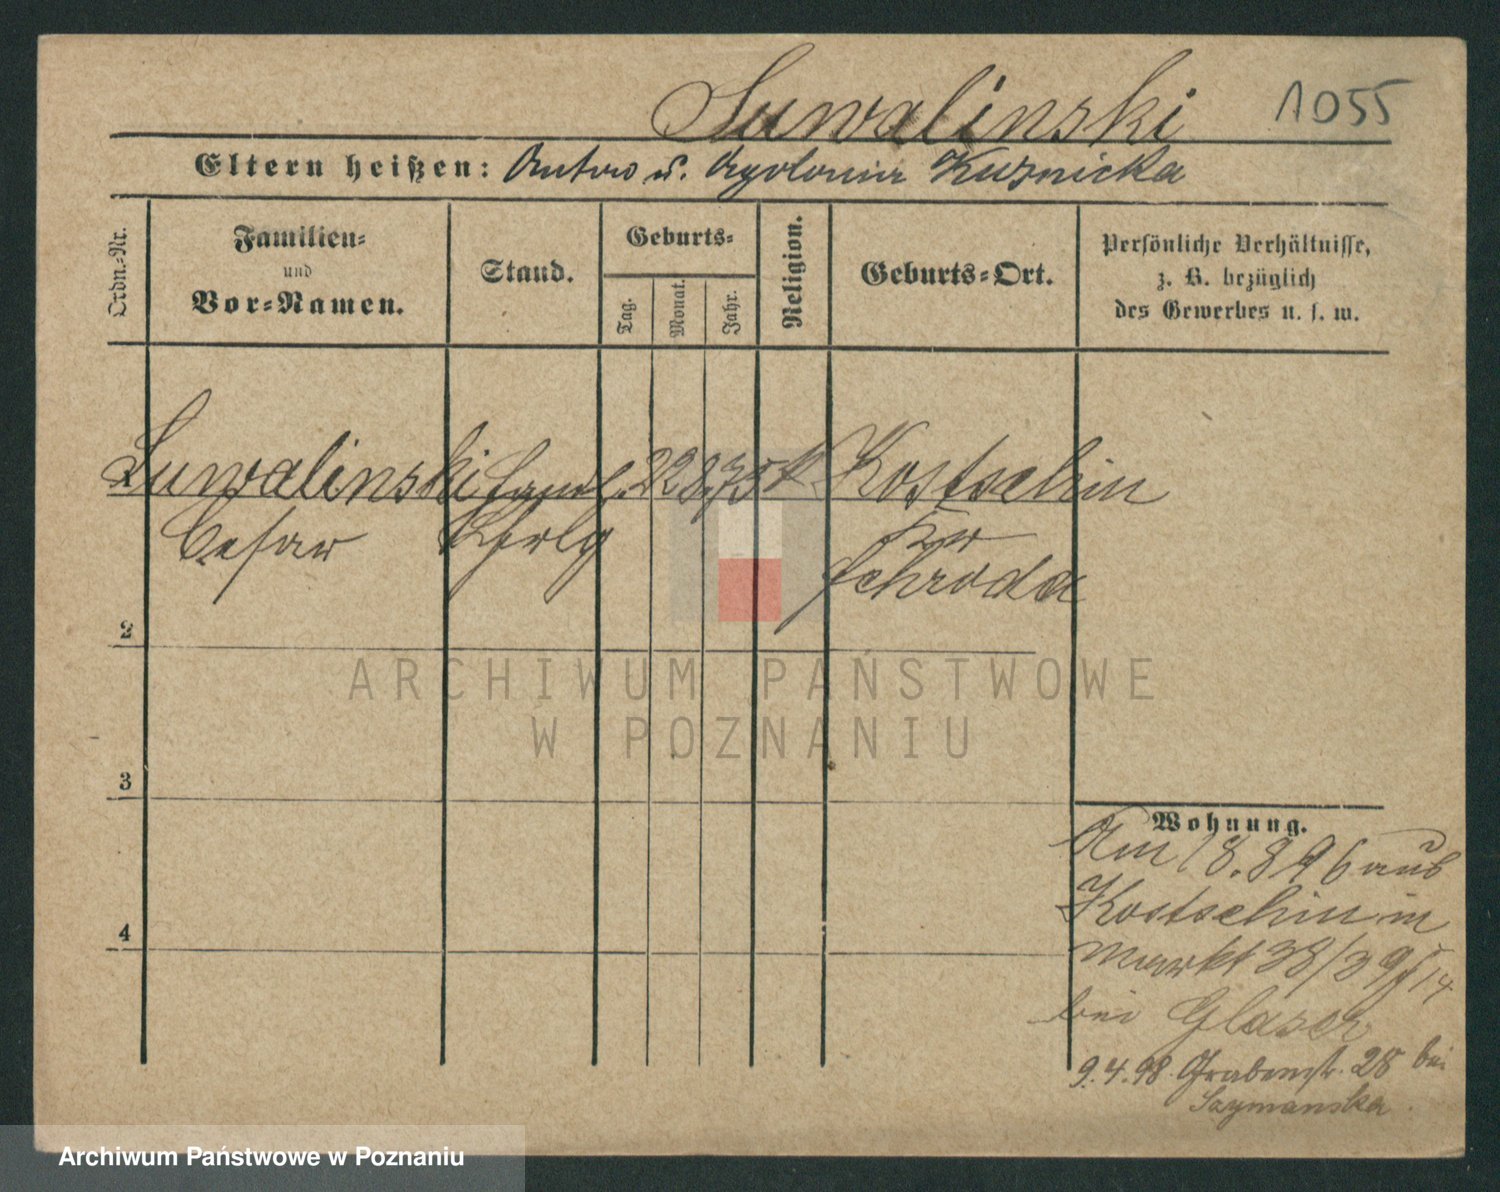 Suwalinski
1055
Eltern heißen: Anton u. Apolonia Kuznicka
Ordn.-Nr.
Familien-
und
Vor-Namen.
Stand.
Geburts-
Tag.
Monat.
Jahr.
Religion.
Geburts-Ort.
Persönliche Verhältnisse,
z. B. bezüglich
des Gewerbes u. s. w.
Suwalinski 22 8. 75 k Kostschin
Cesar
Kr
Schroda
2
3
4
Wohnung.
Am 18.8 96 aus
Kostschin in
Markt 38/39
bei Glaser
9.4.98 Grabenstr. 28 bei
Szymanska.
ARCHIWUM PAŃSTWOWE
W POZNANIU
Archiwum Państwowe w Poznaniu